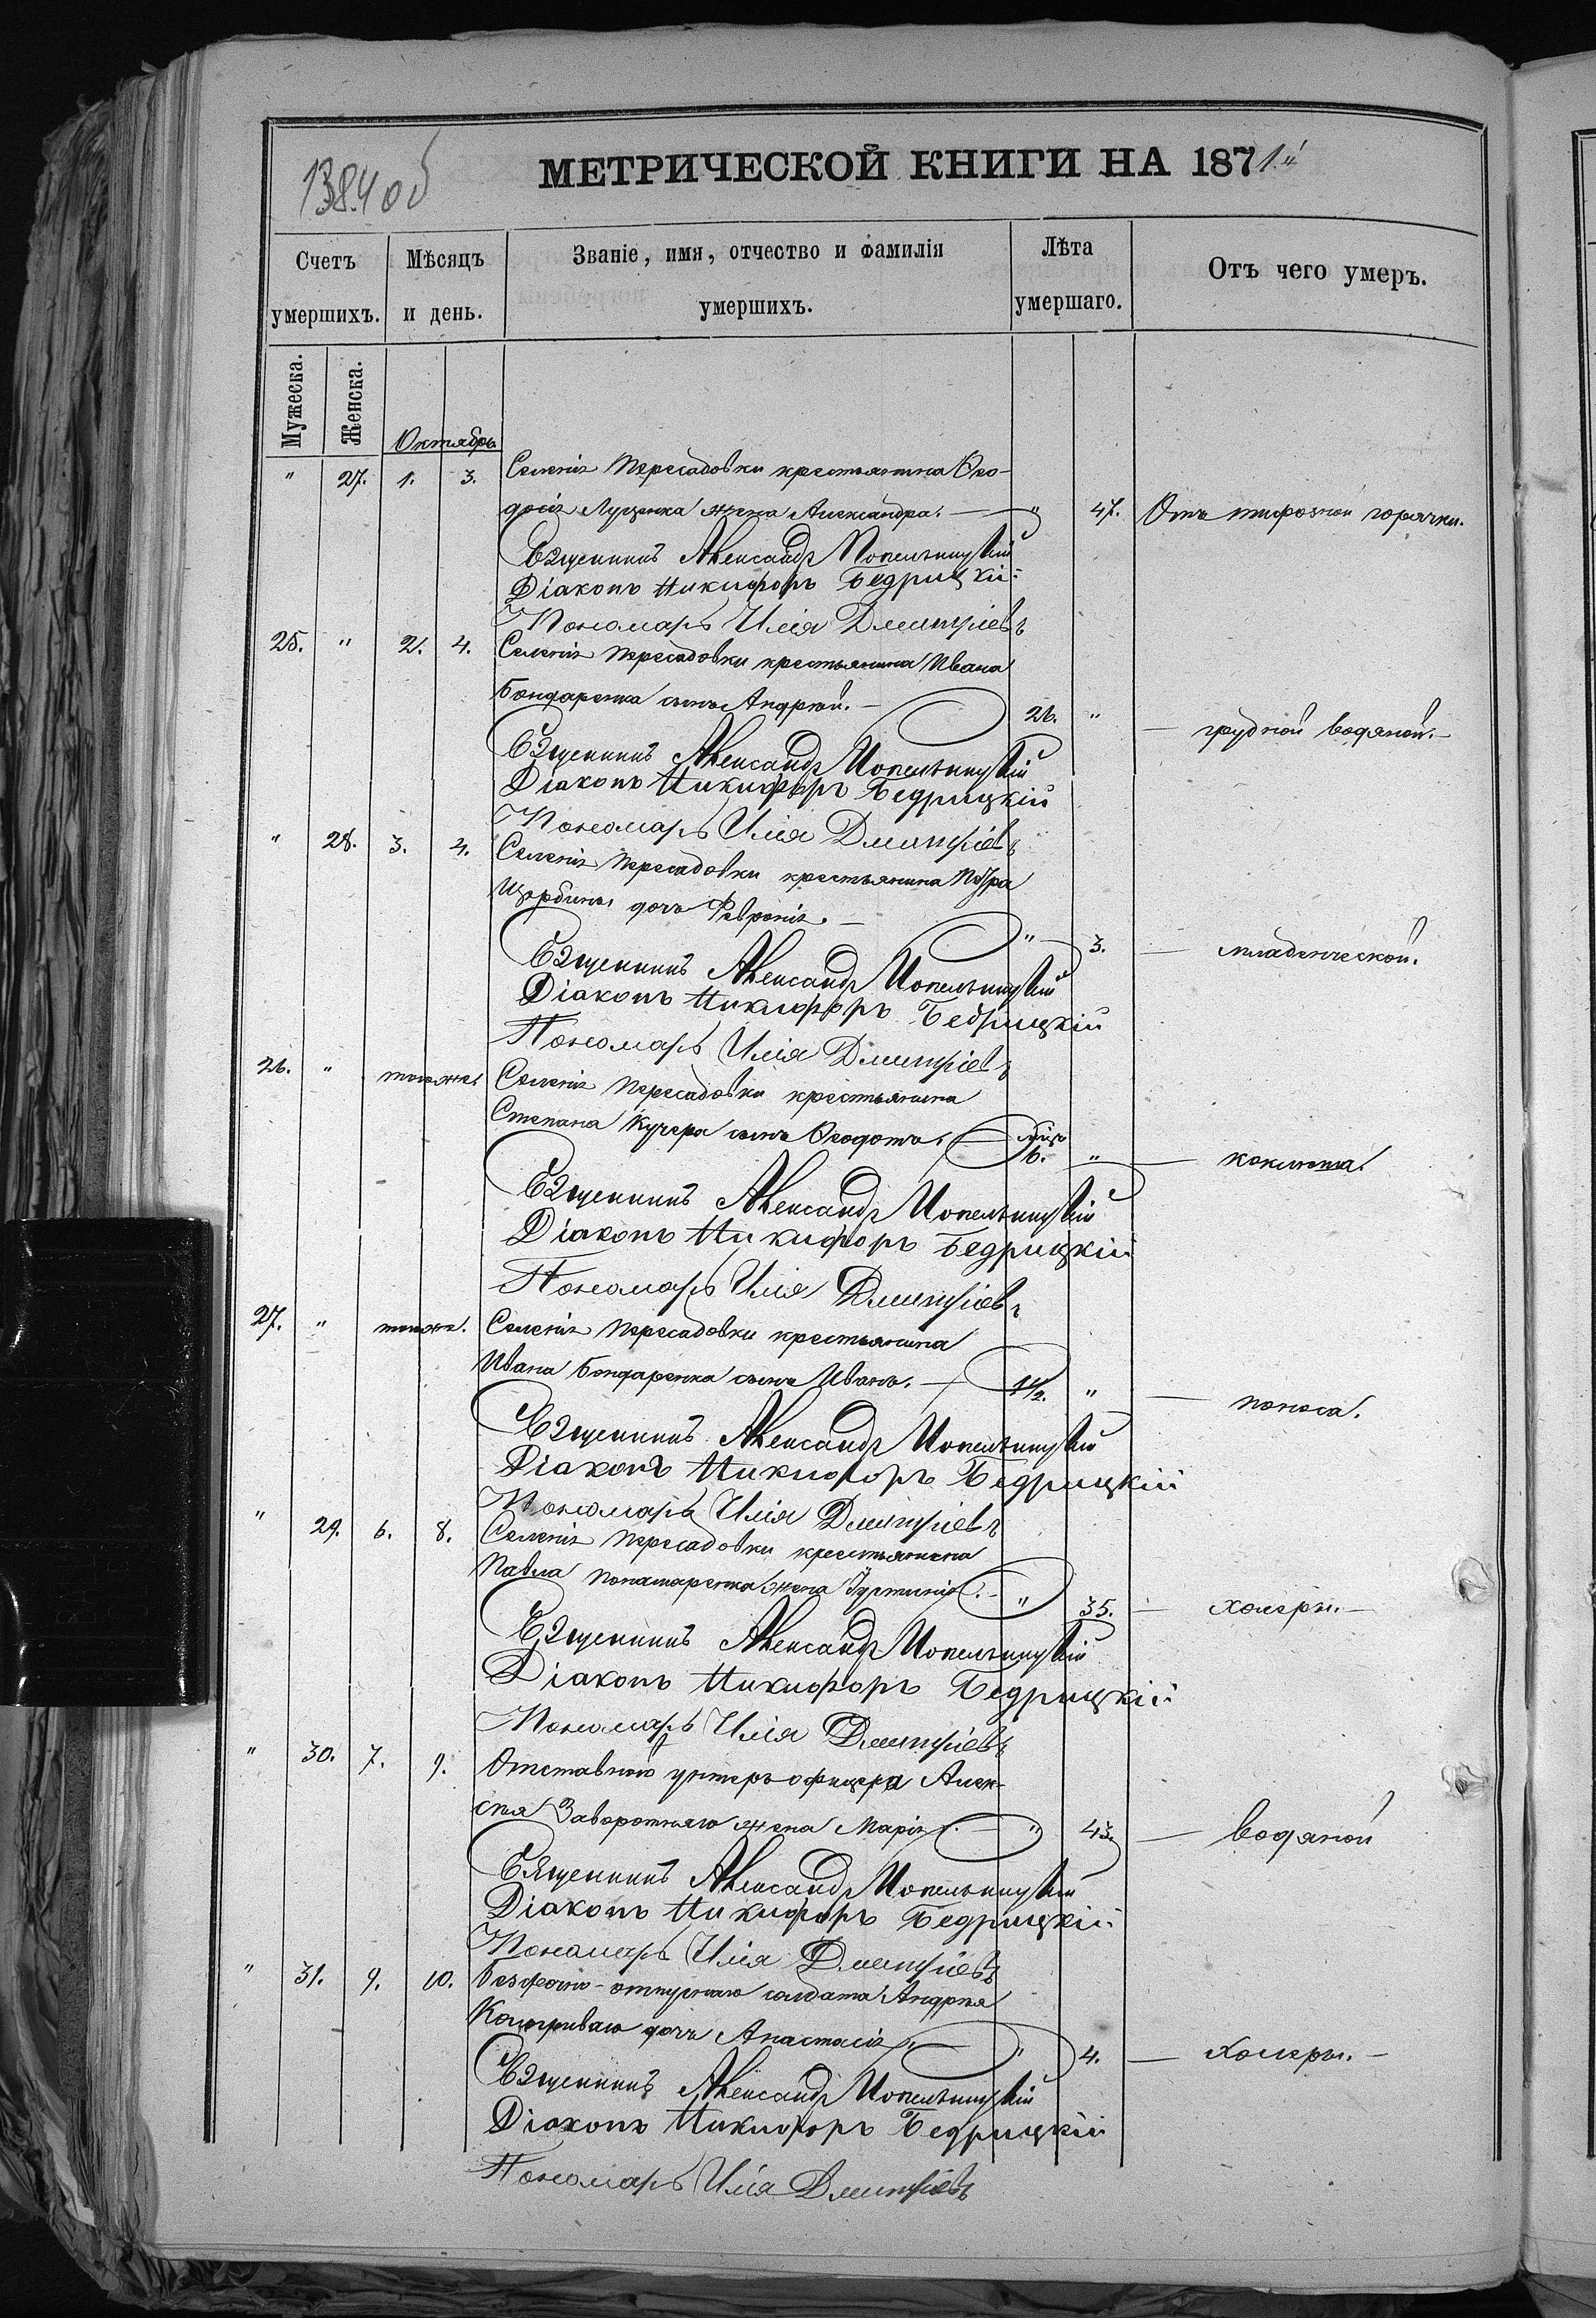 1384 об
МЕТРИЧЕСКОЙ КНИГИ НА 1871й
Счетъ умершихъ.
Мѣсяцъ и день.
Званіе, имя, отчество и фамилія умершихъ.
Лѣта умершаго.
Отъ чего умеръ.
Мужеска.
Женска.
Октябрь
" 27. 1. 3. Селенія Пересадовки крестьянина Ѳео-
досія Луценка жена Александра. — " 47. Отъ тифозной горячки.
Священникъ Александръ Попельницкій
Діаконъ Никифоръ Бедрицкій
Пономарь Илія Дмитріевъ
25. " 2. 4. Селенія Пересадовки крестьянина Ивана
Бондаренка сынъ Андрей. — 26. " — грудной водяной. —
Священникъ Александръ Попельницкій
Діаконъ Никифоръ Бедрицкій
Пономарь Илія Дмитріевъ
" 28. 3. 4. Селенія Пересадовки крестьянина Петра
Щербины дочь Февронія. — " 3. — младенческой.
Священникъ Александръ Попельницкій
Діаконъ Никифоръ Бедрицкій
Пономарь Илія Дмитріевъ
26. " тогоже. Селенія Пересадовки крестьянина
Степана Кучера сынъ Ѳеодотъ. — мѣсц. 6. " — коклюша.
Священникъ Александръ Попельницкій
Діаконъ Никифоръ Бедрицкій
Пономарь Илія Дмитріевъ
27. " тогоже. Селенія Пересадовки крестьянина
Ивана Бондаренка сынъ Иванъ. — 1½. " — поноса.
Священникъ Александръ Попельницкій
Діаконъ Никифоръ Бедрицкій
Пономарь Илія Дмитріевъ
" 29. 6. 8. Селенія Пересадовки крестьянина
Павла Понамаренка жена Іустинія. — " 35. — холеры. —
Священникъ Александръ Попельницкій
Діаконъ Никифоръ Бедрицкій
Пономарь Илія Дмитріевъ
" 30. 7. 9. Отставного унтеръ офицера Алек-
сѣя Заворотняго жена Марія. — " 43. — водяной
Священникъ Александръ Попельницкій
Діаконъ Никифоръ Бедрицкій
Пономарь Илія Дмитріевъ
" 31. 9. 10. Безсрочно-отпускнаго солдата Андрея
дочь Анастасія. — " 4. — Холеры. —
Священникъ Александръ Попельницкій
Діаконъ Никифоръ Бедрицкій
Пономарь Илія Дмитріевъ